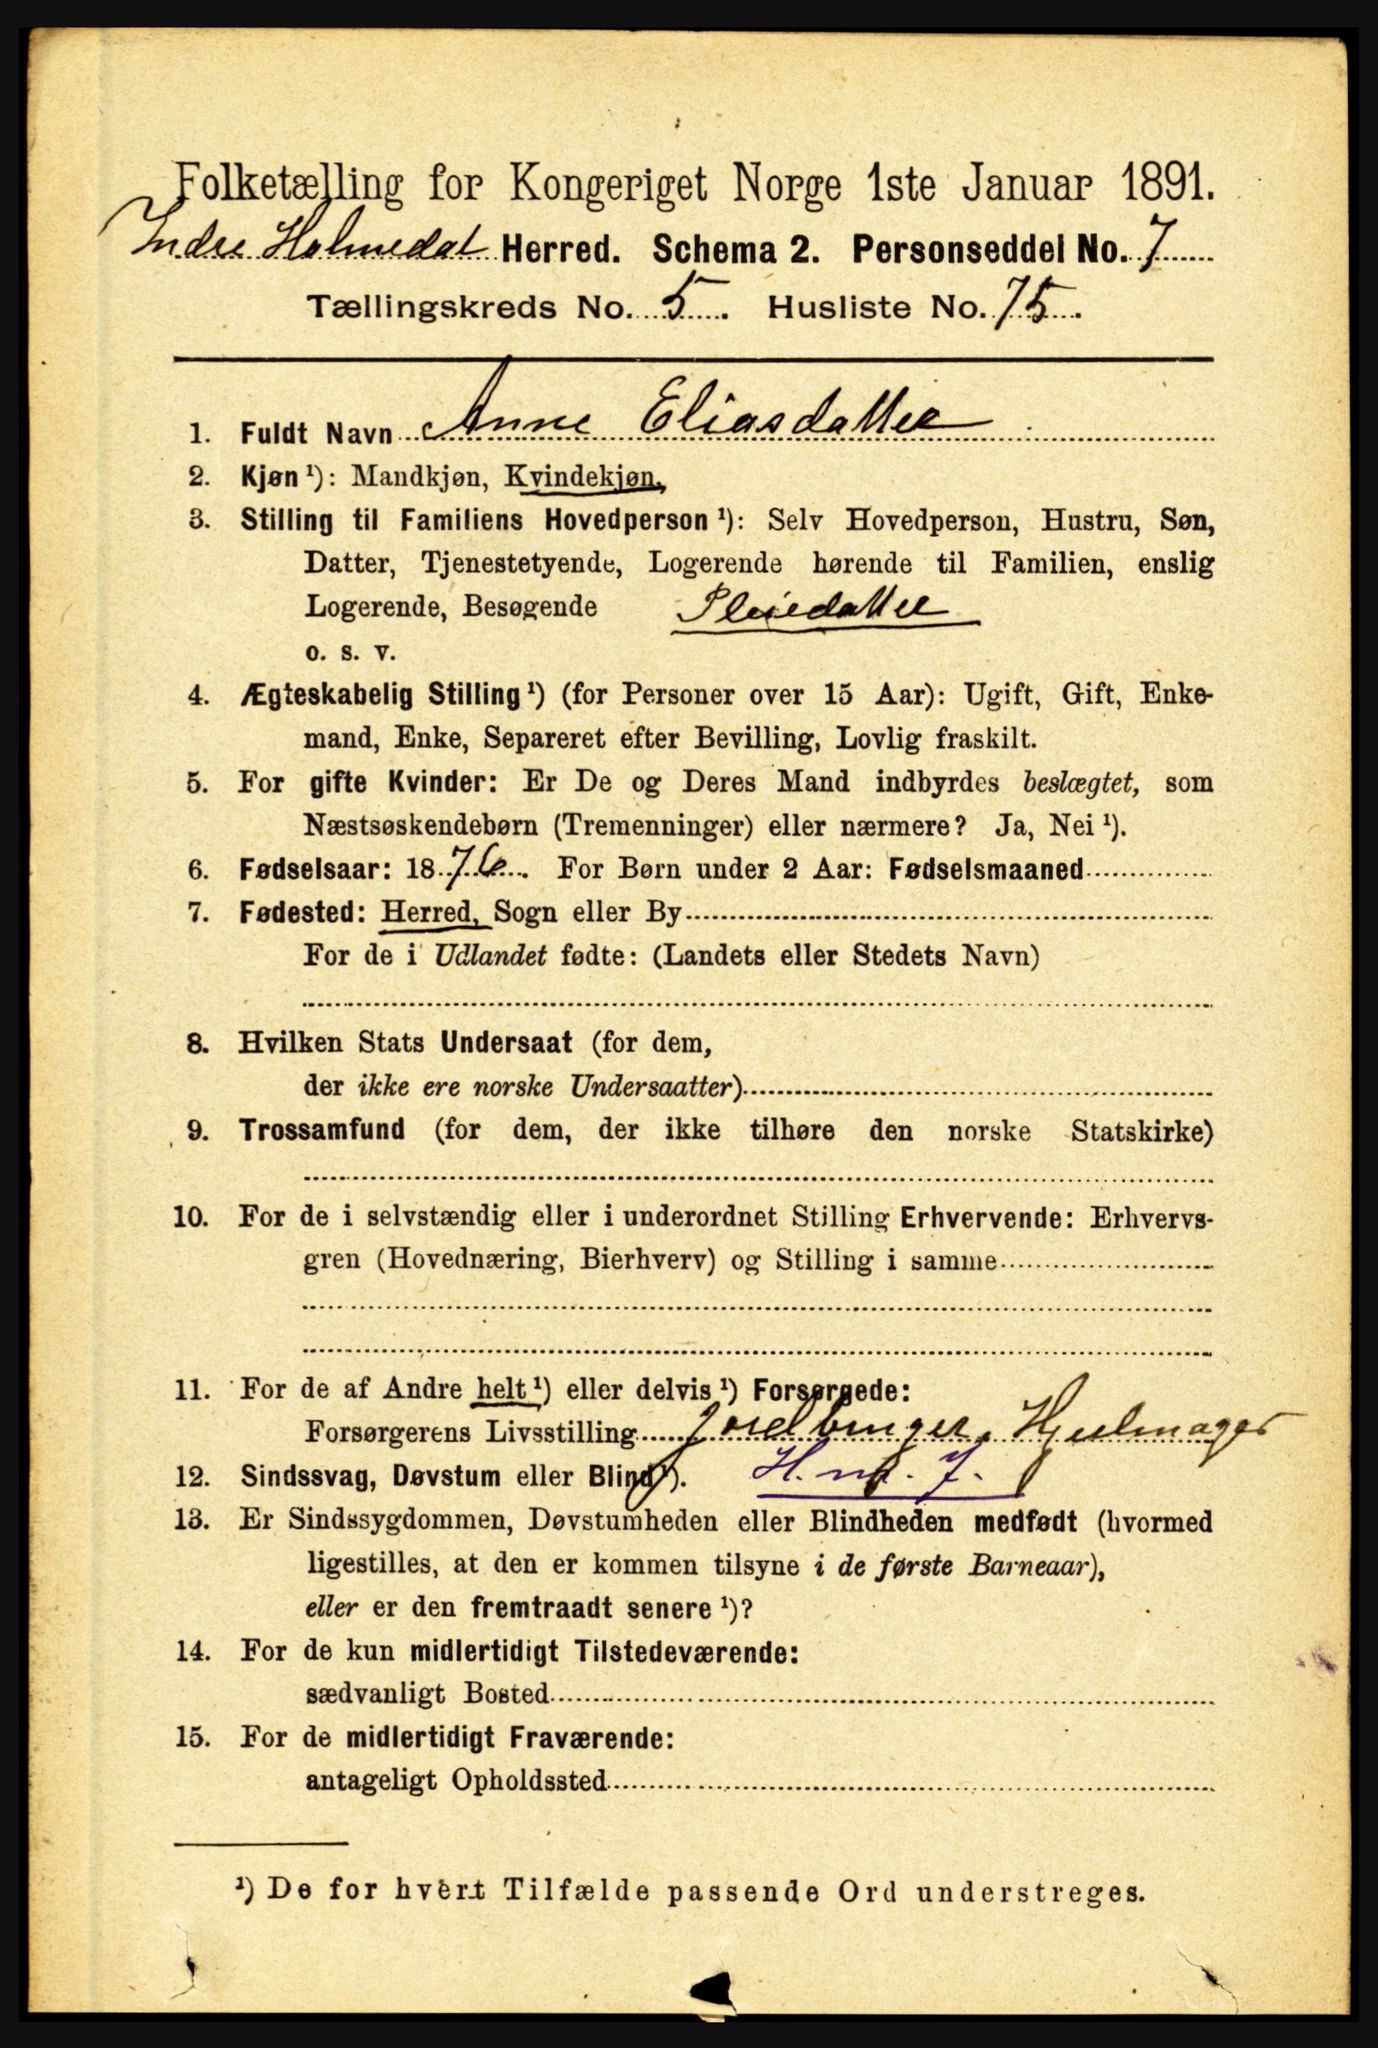 Folketælling for Kongeriget Norge 1ste Januar 1891.
Indre Holmedal Herred. Schema 2. Personseddel No. 7
Tællingskreds No. 5. Husliste No. 75.
1. Fuldt Navn Anne Eliasdatter
2. Kjøn ¹): Mandkjøn, Kvindekjøn.
3. Stilling til Familiens Hovedperson ¹): Selv Hovedperson, Hustru, Søn,
Datter, Tjenestetyende, Logerende hørende til Familien, enslig
Logerende, Besøgende Pleiedatter
o. s. v.
4. Ægteskabelig Stilling ¹) (for Personer over 15 Aar): Ugift, Gift, Enke-
mand, Enke, Separeret efter Bevilling, Lovlig fraskilt.
5. For gifte Kvinder: Er De og Deres Mand indbyrdes beslægtet, som
Næstsøskendebørn (Tremenninger) eller nærmere? Ja, Nei ¹).
6. Fødselsaar: 1876. For Børn under 2 Aar: Fødselsmaaned
7. Fødested: Herred, Sogn eller By
For de i Udlandet fødte: (Landets eller Stedets Navn)
8. Hvilken Stats Undersaat (for dem,
der ikke ere norske Undersaatter)
9. Trossamfund (for dem, der ikke tilhøre den norske Statskirke)
10. For de i selvstændig eller i underordnet Stilling Erhvervende: Erhvervs-
gren (Hovednæring, Bierhverv) og Stilling i samme
11. For de af Andre helt ¹) eller delvis ¹) Forsørgede:
Forsørgerens Livsstilling Jordbruger, Hjulmager
12. Sindssvag, Døvstum eller Blind ¹). H. no. 7.
13. Er Sindssygdommen, Døvstumheden eller Blindheden medfødt (hvormed
ligestilles, at den er kommen tilsyne i de første Barneaar),
eller er den fremtraadt senere ¹)?
14. For de kun midlertidigt Tilstedeværende:
sædvanligt Bosted
15. For de midlertidigt Fraværende:
antageligt Opholdssted
¹) De for hvert Tilfælde passende Ord understreges.